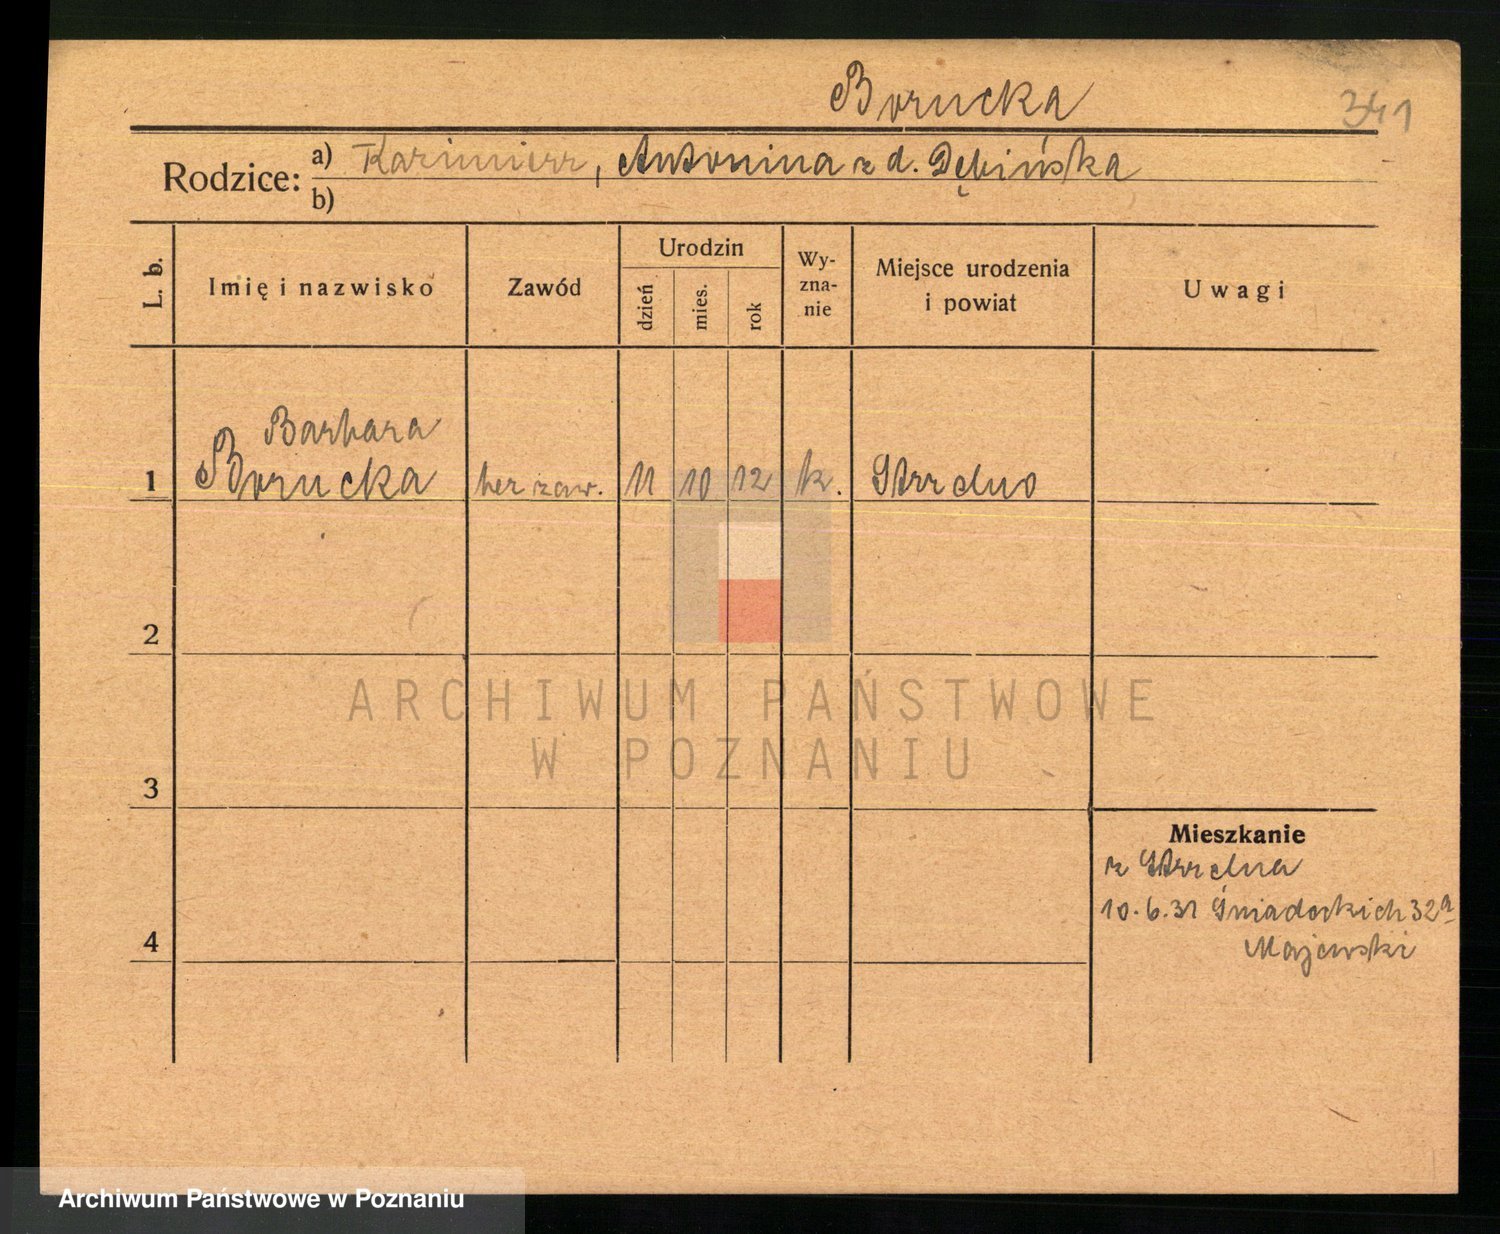 Borucka
341
Rodzice: a) Kazimierz, Antonina z d. Dębińska
b)
L. b. Imię i nazwisko Zawód Urodzin dzień mies. rok Wy-zna-nie Miejsce urodzenia i powiat Uwagi
Barbara
1 Borucka bez zaw. 11 10 12 k. Strzelno
2
3
4
Mieszkanie
z Strzelna
10.6.31 Śniadeckich 32a
Majewski
ARCHIWUM PAŃSTWOWE
W POZNANIU
Archiwum Państwowe w Poznaniu